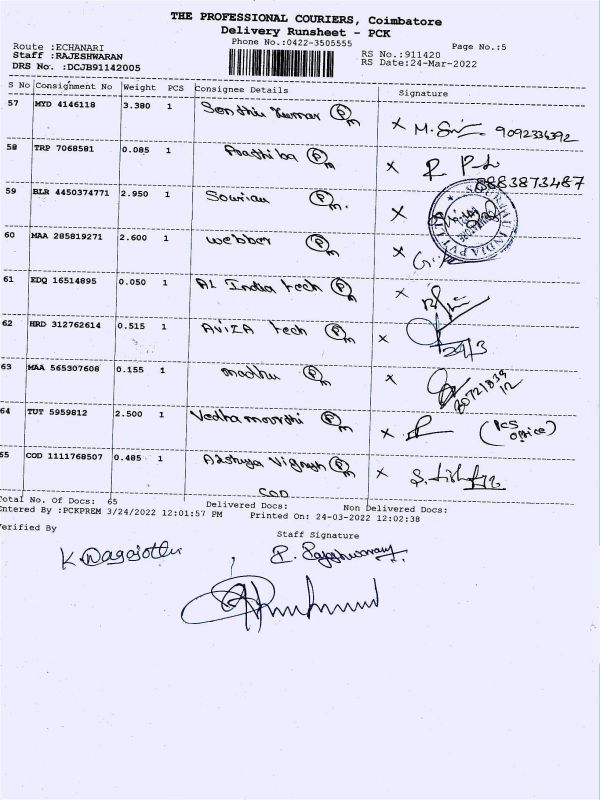 THE PROFESSIONAL COURIERS, Coimbatore
Delivery Runsheet - PCK
Phone No.:0422-3505555
Page No.:5
Route :ECHANARI
RS No.:911420
Staff :RAJESHWARAN
RS Date:24-Mar-2022
DRS No. :DCJB91142005
S No Consignment No Weight PCS Consignee Details Signature
57 MYD 4146118 3.380 1 Senthil Kumar Pm x M. 9092336392
58 TRP 7068581 0.085 1 Pm x 8883873487
59 BLR 4450374771 2.950 1 Sourian Pm. x
60 MAA 285819271 2.600 1 webber Pm x
61 EDQ 16514895 0.050 1 AL India tech Pm x
62 HRD 312762614 0.515 1 AVIZA tech Pm x 24/3
63 MAA 565307608 0.155 1 madhu Pm x
64 TUT 5959812 2.500 1 Vedhamoorthi Pm x (ICS office)
65 COD 1111768507 0.485 1 Vignesh Pm x
COD
Total No. Of Docs: 65 Delivered Docs: Non Delivered Docs:
Entered By :PCKPREM 3/24/2022 12:01:57 PM Printed On: 24-03-2022 12:02:38
Verified By Staff Signature